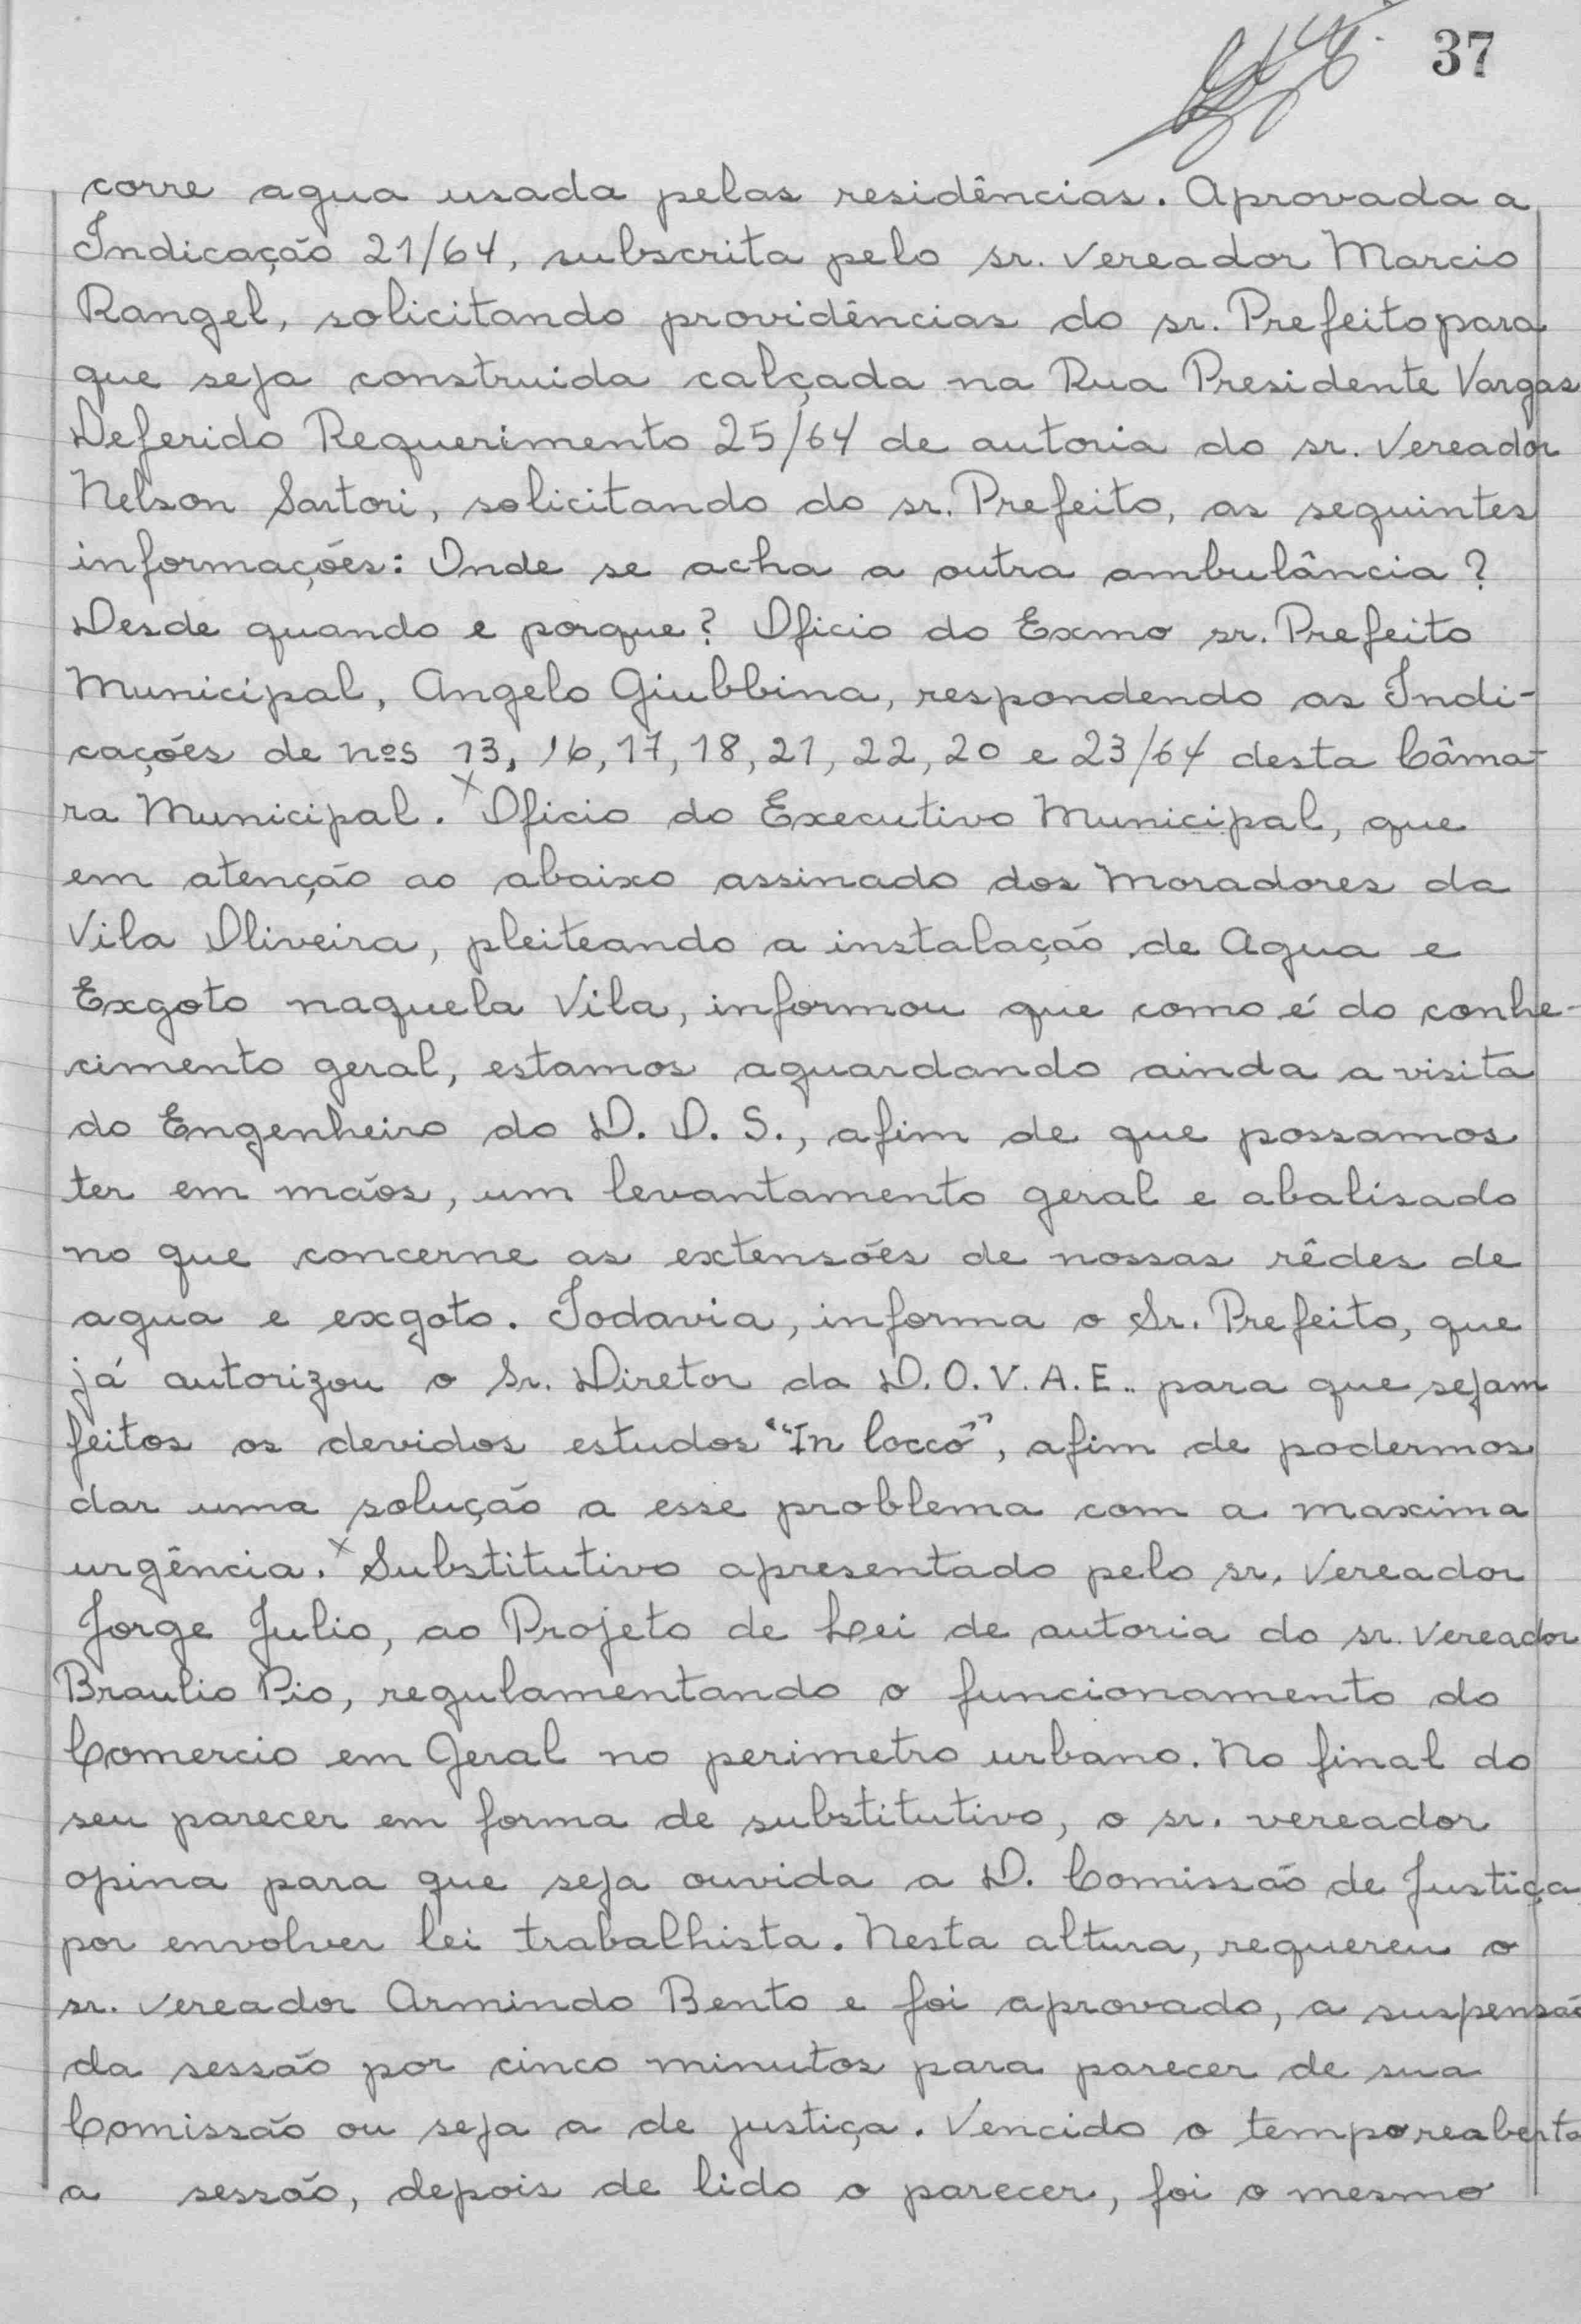 37
corre agua usada pelas residências. Aprovada a
Indicação 21/64, subscrita pelo sr. vereador Marcio
Rangel, solicitando providências do sr. Prefeito para
que seja construida calçada na Rua Presidente Vargas
Deferido Requerimento 25/64 de autoria do sr. Vereador
Nelson Sartori, solicitando do sr. Prefeito, as seguintes
informações: Onde se acha a outra ambulância?
Desde quando e porque? Oficio do Exmo sr. Prefeito
Municipal, Angelo Giubbina, respondendo as Indi-
cações de nºs 13, 16, 17, 18, 21, 22, 20 e 23/64 desta Câma-
ra Municipal. x Oficio do Executivo Municipal, que
em atenção ao abaixo assinado dos Moradores da
Vila Oliveira, pleiteando a instalação de Agua e
Exgoto naquela Vila, informou que como é do conhe-
cimento geral, estamos aguardando ainda a visita
do Engenheiro do D. O. S., afim de que possamos
ter em mãos, um levantamento geral e abalisado
no que concerne as extensões de nossas rêdes de
agua e exgoto. Todavia, informa o Sr. Prefeito, que
já autorizou o Sr. Diretor da D.O.V.A.E.. para que sejam
feitos os devidos estudos "In locco", afim de podermos
dar uma solução a esse problema com a maxima
urgência. x Substitutivo apresentado pelo sr. Vereador
Jorge Julio, ao Projeto de Lei de autoria do sr. vereador
Braulio Pio, regulamentando o funcionamento do
Comercio em Geral no perimetro urbano. No final do
seu parecer em forma de substitutivo, o sr. vereador
opina para que seja ouvida a D. Comissão de Justiça
por envolver lei trabalhista. Nesta altura, requereu o
sr. vereador Armindo Bento e foi aprovado, a suspensão
da sessão por cinco minutos para parecer de sua
Comissão ou seja a de justiça. Vencido o tempo reaberta
a sessão, depois de lido o parecer, foi o mesmo